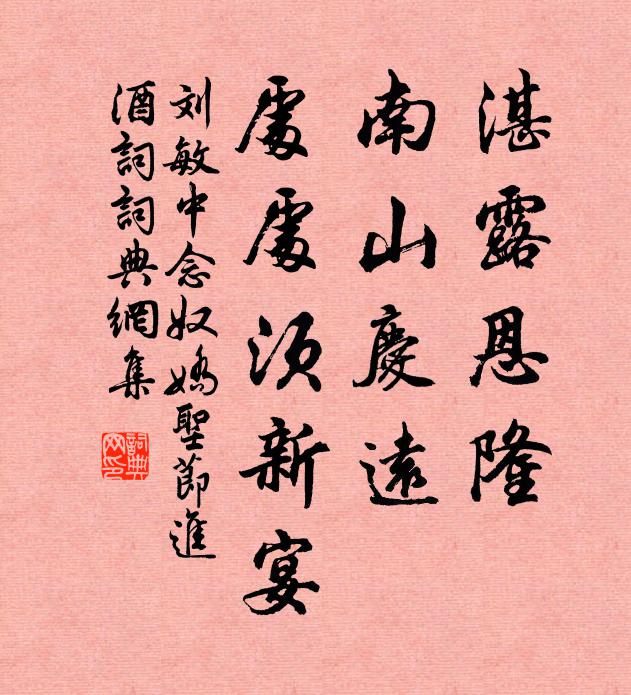 湛露恩隆
南山慶遠
處處須新宴
刘敏中念奴嬌聖節進
酒詞詞典網集
詞典
网印